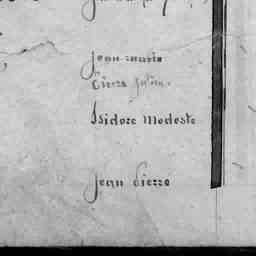 Jean marie
Pierre
Isidore Modeste
Jean Pierre